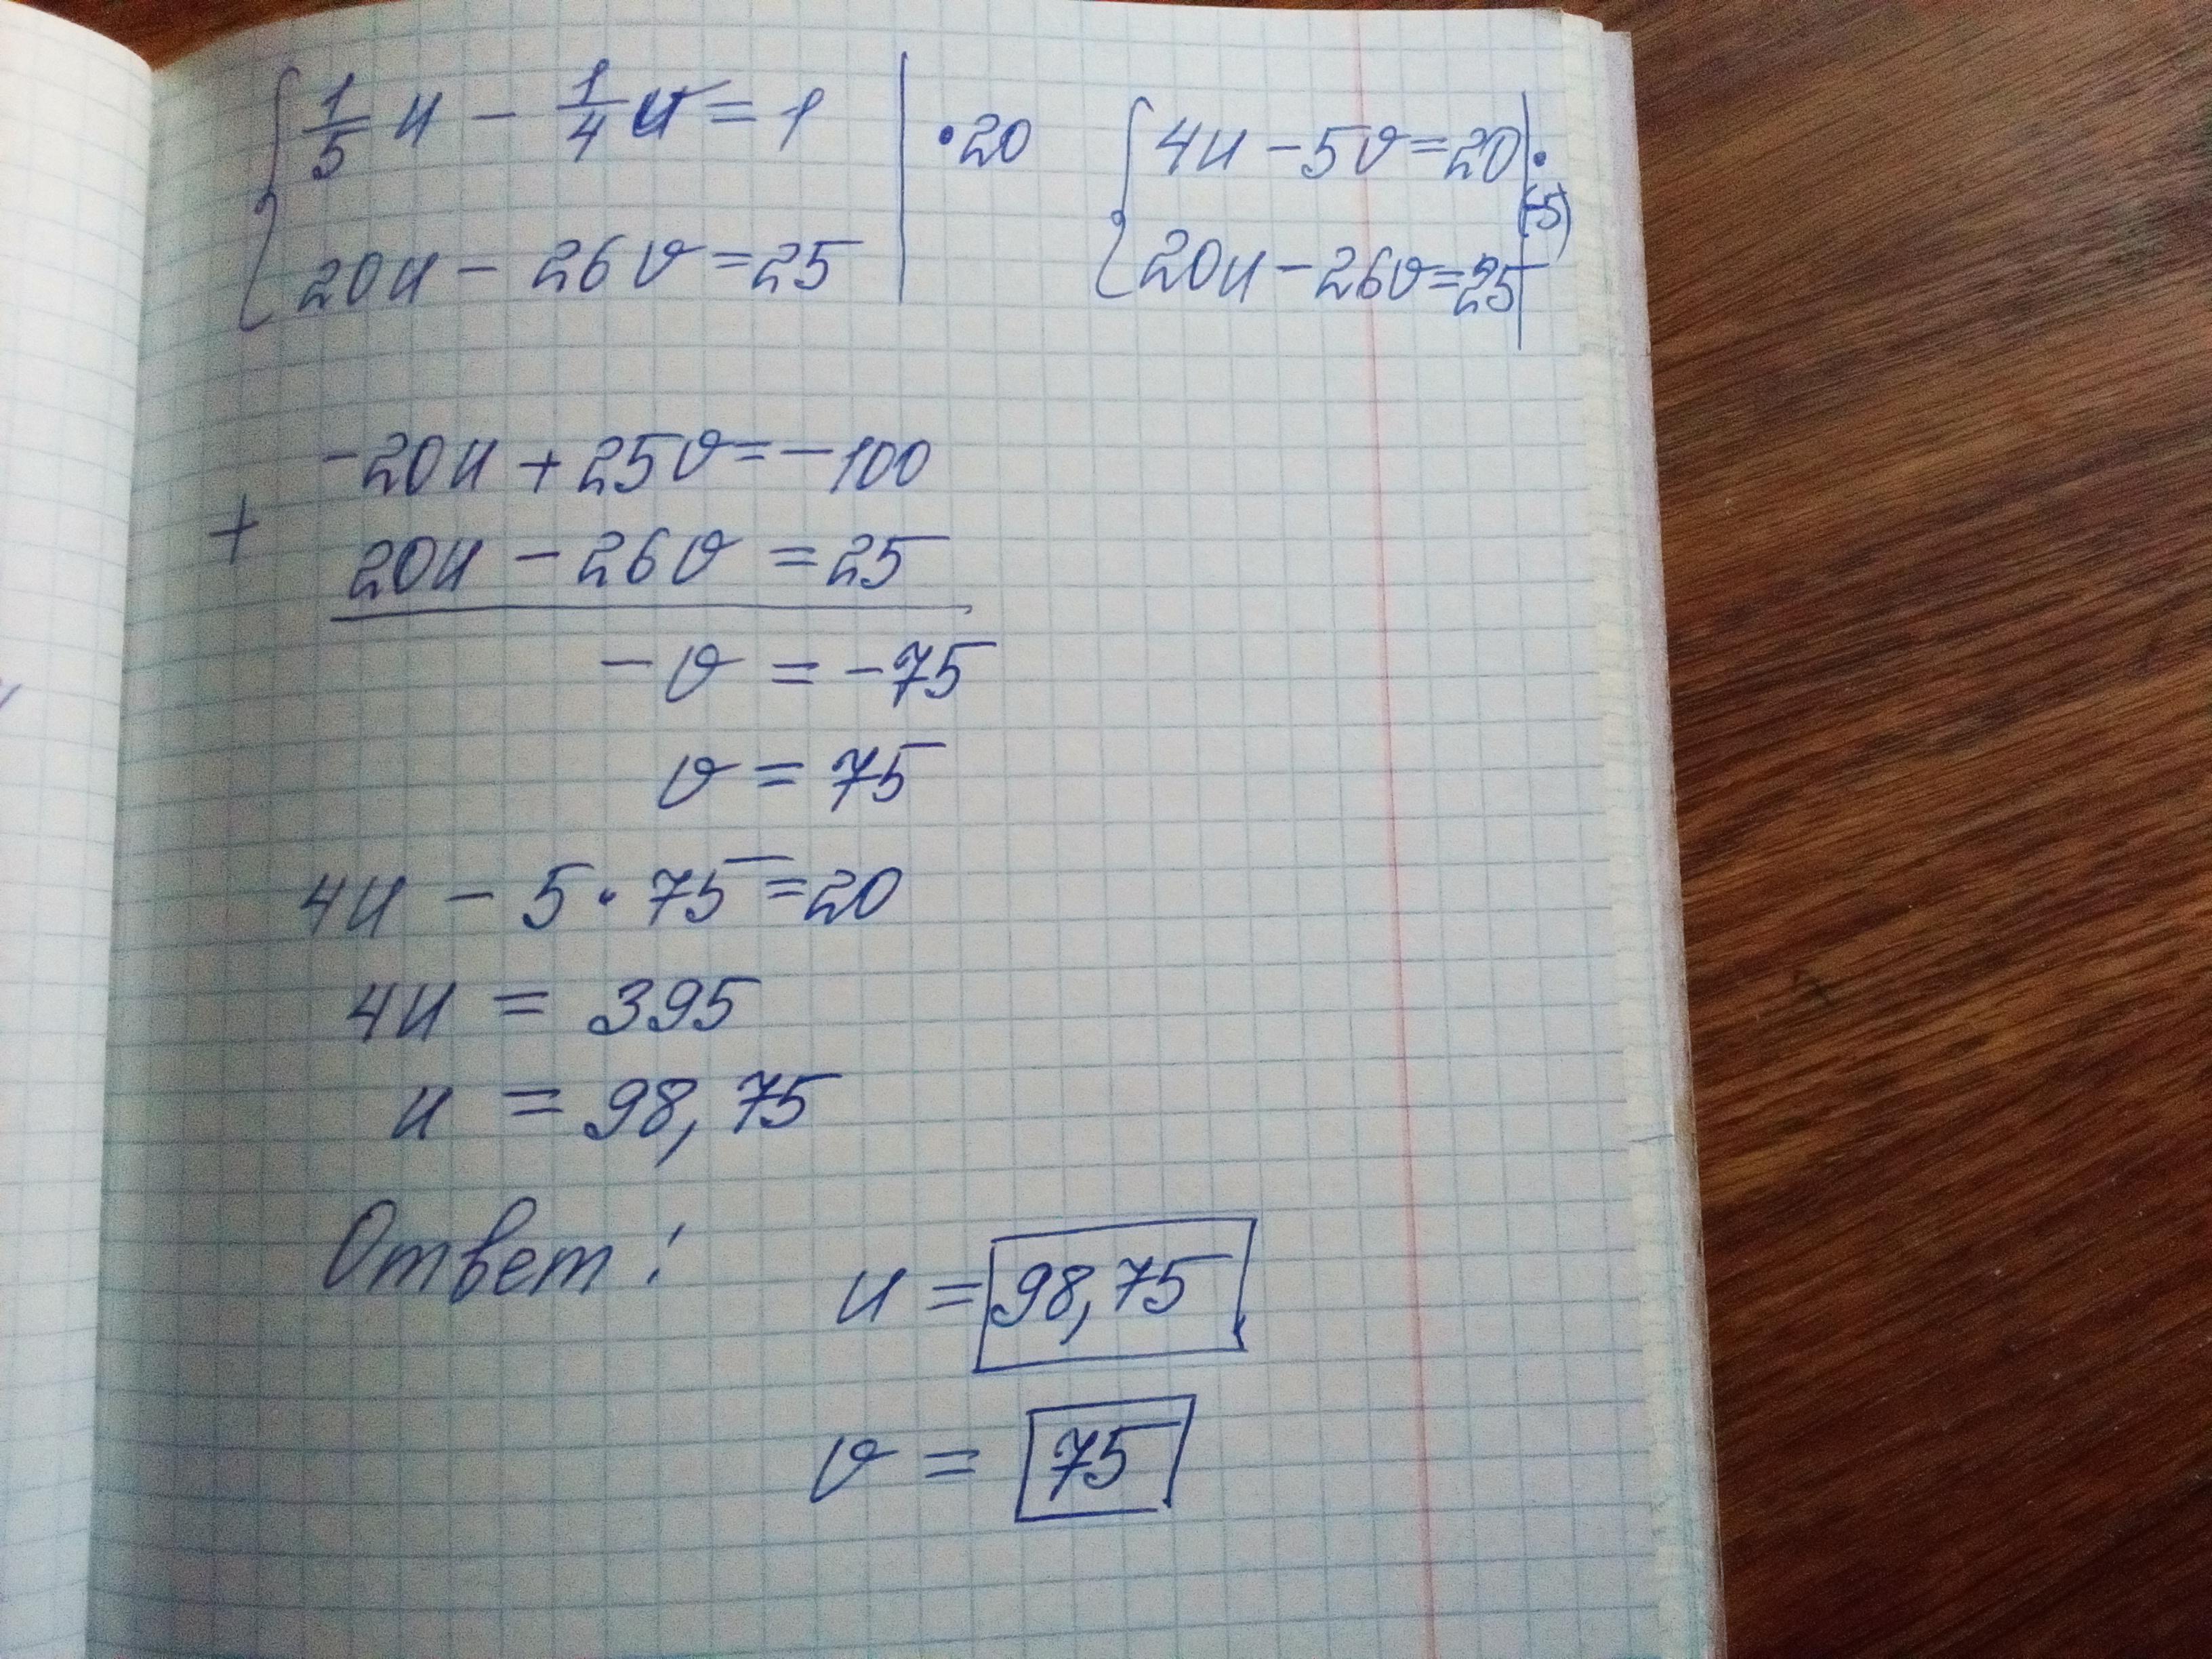 1/5 u - 1/4 v = 1 | ·20
20u - 26v = 25
4u - 5v = 20 | ·(-5)
20u - 26v = 25
-20u + 25v = -100
+
20u - 26v = 25
-v = -75
v = 75
4u - 5·75 = 20
4u = 395
u = 98,75
Ответ:
u = 98,75
v = 75